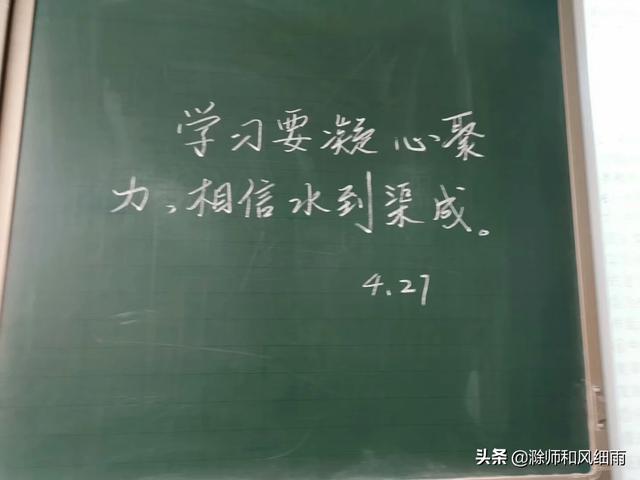 学习要凝心聚
力,相信水到渠成。
4.27
头条 @滁师和风细雨